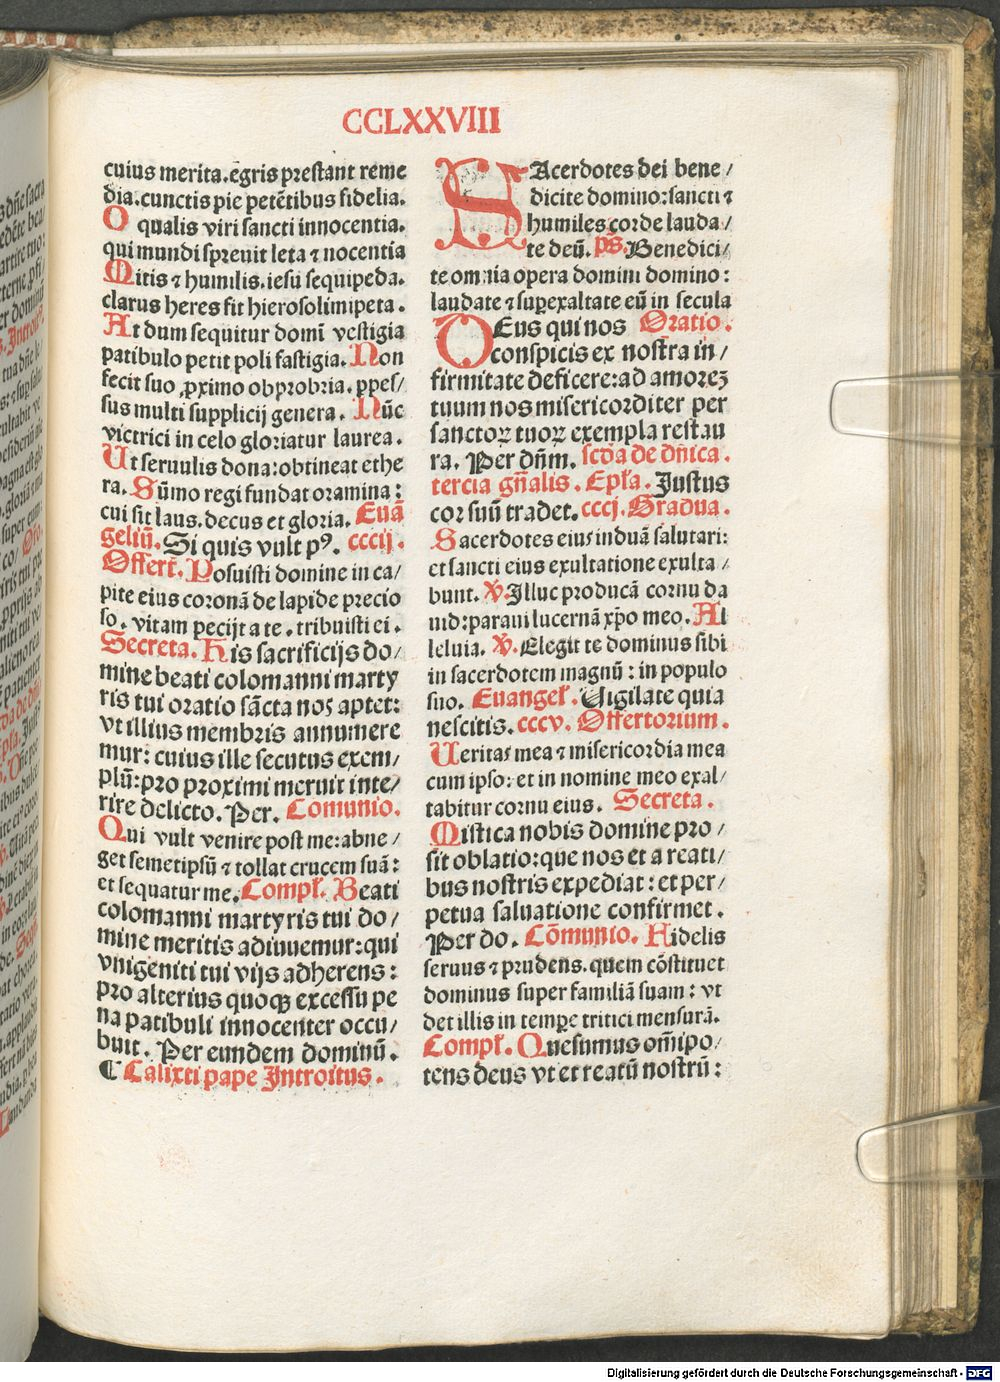 CCLXXVIII
cuius merita. egris prestant reme
dia. cunctis pie petētibus fidelia.
O qualis viri sancti innocentia.
qui mundi spreuit leta ⁊ nocentia
Mitis ⁊ humilis. iesu sequipeda.
clarus heres fit hierosolimipeta.
At dum sequitur domī vestigia
patibulo petit poli fastigia. Non
fecit suo ꝓximo obprobria. ppes/
sus multi supplicij genera. Nūc
victrici in celo gloriatur laurea.
Ut seruulis dona: obtineat ethe
ra. Sūmo regi fundat oramina:
cui sit laus. decus et gloria. Euā
geliū. Si quis vult pꝰ. cccij.
Offert̄. Posuisti domine in ca/
pite eius coronā de lapide precio
so. vitam pecijt a te. tribuisti ei.
Secreta. His sacrificijs do/
mine beati colomanni marty
ris tui oratio sācta nos aptet:
vt illius membris annumere
mur: cuius ille secutus exem/
plū: pro proximi meruit inte/
rire delicto. Per. Comunio.
Qui vult venire post me: abne/
get semetipsū ⁊ tollat crucem suā:
et sequatur me. Compl̄. Beati
colomanni martyris tui do/
mine meritis adiuuemur: qui
vnigeniti tui vijs adherens:
pro alterius quoqꝫ excessu pe
na patibuli innocenter occu/
buit. Per eundem dominū.
¶ Calixti pape Introitus.
SAcerdotes dei bene/
dicite domino: sancti ⁊
humiles corde lauda/
te deū. ps̄. Benedici/
te omnia opera domini domino:
laudate ⁊ superexaltate eū in secula
DEus qui nos Oratio.
conspicis ex nostra in/
firmitate deficere: ad amorez
tuum nos misericorditer per
sanctoꝝ tuoꝝ exempla restau
ra. Per dn̄m. scd̄a de dn̄ica.
tercia gn̄alis. Epl̄a. Justus
cor suū tradet. cccj. Gradua.
Sacerdotes eius induā salutari:
et sancti eius exultatione exulta/
bunt. ℣. Illuc producā cornu da
uid: paraui lucernā xp̄o meo. Al
leluia. ℣. Elegit te dominus sibi
in sacerdotem magnū: in populo
suo. Euangel̄. Uigilate quia
nescitis. cccv. Offertorium.
Ueritas mea ⁊ misericordia mea
cum ipso: et in nomine meo exal/
tabitur cornu eius. Secreta.
Mistica nobis domine pro/
sit oblatio: que nos et a reati/
bus nostris expediat: et per/
petua saluatione confirmet.
Per do. Cōmunio. Fidelis
seruus ⁊ prudens. quem cōstituet
dominus super familiā suam: vt
det illis in tempe tritici mensurā.
Compl̄. Quesumus om̄ipo/
tens deus vt et reatū nostrū:
Digitalisierung gefördert durch die Deutsche Forschungsgemeinschaft - DFG